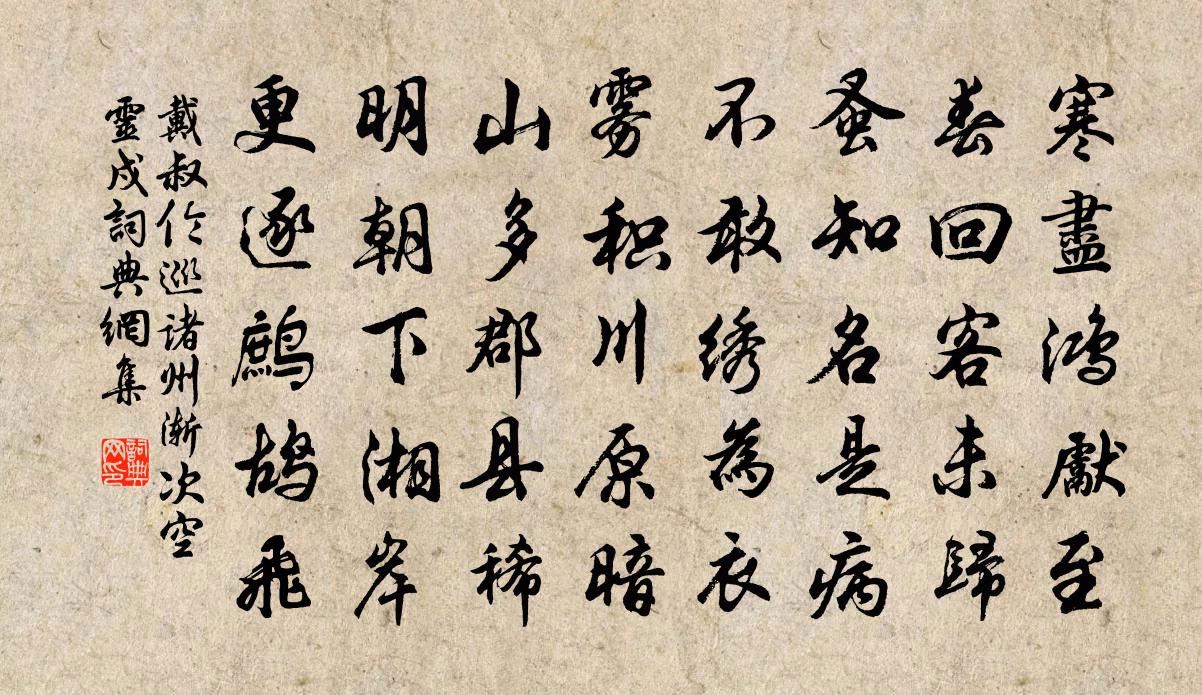 寒盡鸿獻至
春回客未歸
蚤知名是病
不敢绣為衣
雾积川原暗
山多郡县稀
明朝下湘岸
更逐鷓鸪飛
戴叔伦巡诸州渐次空
靈戍詞典網集
詞典网印